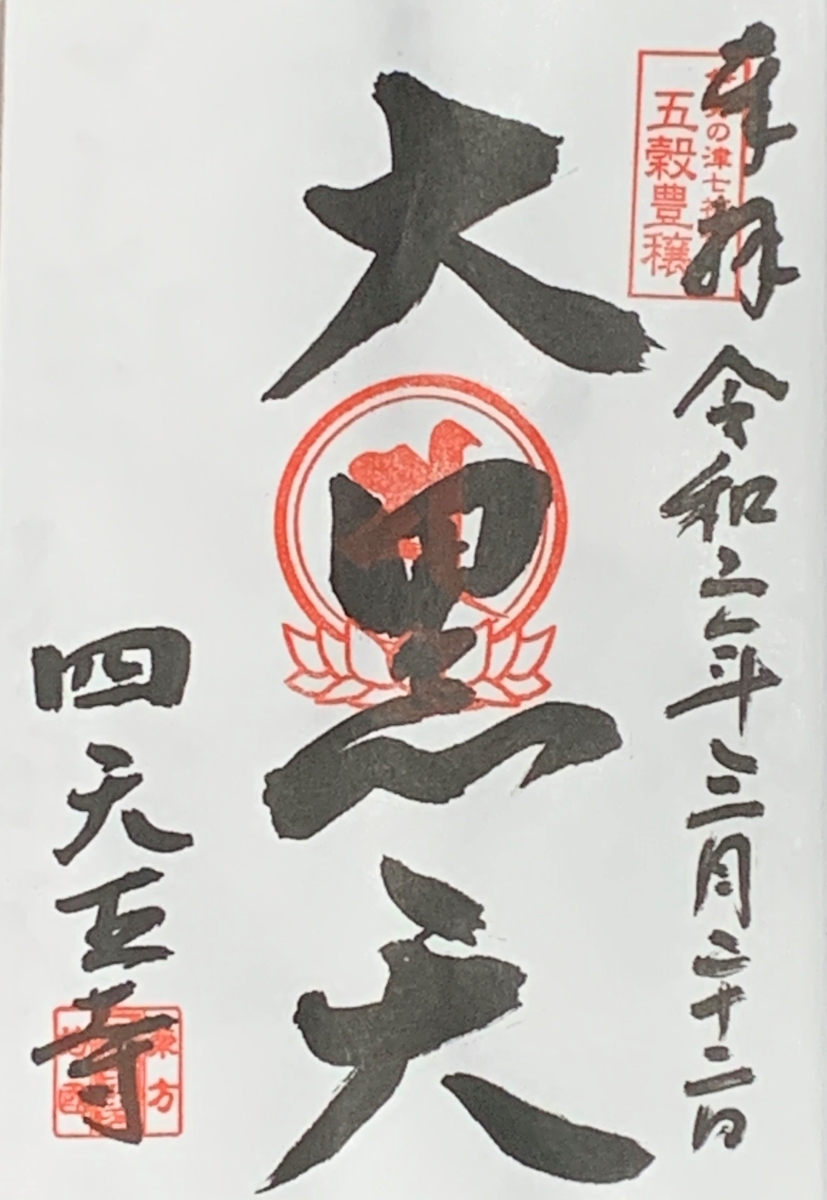 奉拝
令和二年三月二十二日
の津七福
五穀豊穣
大黒天
四天王寺
東方